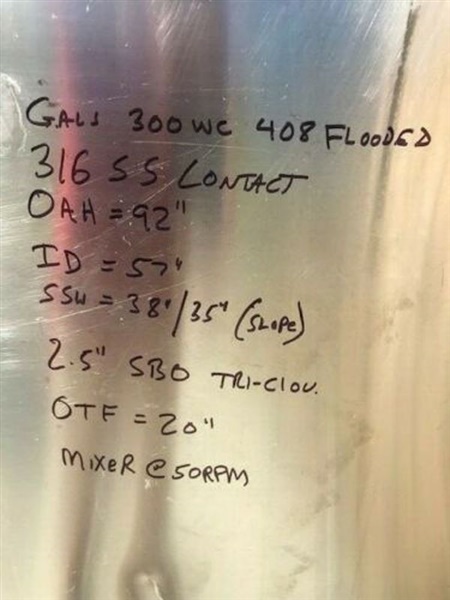 GALS 300 WC 408 FLOODED
316 SS CONTACT
OAH = 92"
ID = 57"
SSW = 38"/35" (SLOPE)
2.5" SBO TRI-CLOV.
OTF = 20"
MIXER @ 50RPM